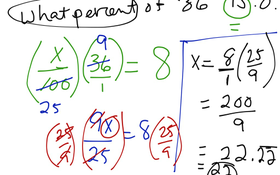 What percent of 36 is 8.
(x/100)(36/1) = 8
9
25
(25/9)(9x/25) = 8(25/9)
x = 8/1 (25/9)
= 200/9
= 22.22